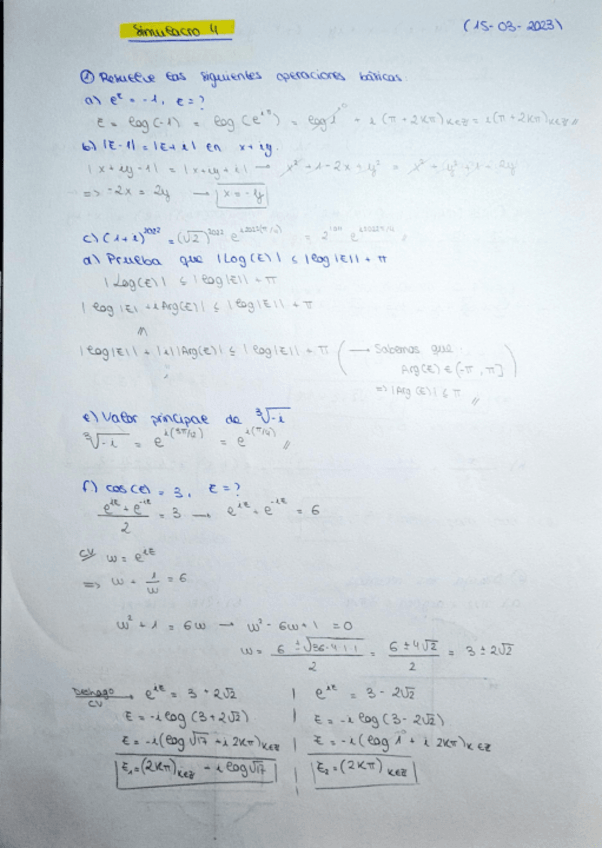 Simulacro 4 (15-03-2023)
① Resuelve las siguientes operaciones básicas:
a) e^z = -1, z = ?
z = log(-1) = log(e^{iπ}) = log 1 + i(π + 2kπ)_{k∈ℤ} = i(π + 2kπ)_{k∈ℤ} //
b) |z-1| = |z+i| en x+iy
|x+iy-1| = |x+iy+i| → x² + 1 - 2x + y² = x² + y² + 1 + 2y
=> -2x = 2y → x = -y
c) (1+i)^{2022} = (√2)^{2022} e^{i2022(π/4)} = e^{i2022π/4} //
d) Prueba que |Log(z)| ≤ |log|z|| + π
|Log(z)| ≤ |log|z|| + π
|log|z| + iArg(z)| ≤ |log|z|| + π
|log|z|| + |i||Arg(z)| ≤ |log|z|| + π ( → Sabemos que
Arg(z) ∈ (-π, π]
=> |Arg(z)| ≤ π //
e) Valor principal de ∛-i
∛-i =
f) cos(z) = 3, z = ?
(e^{iz} + e^{-iz})/2 = 3 → e^{iz} + e^{-iz} = 6
CV w = e^{iz}
=> w + 1/w = 6
w² + 1 = 6w → w² - 6w + 1 = 0
w = (6 ± √36-4·1·1)/2 = (6 ± 4√2)/2 = 3 ± 2√2
Deshago CV → e^{iz} = 3 + 2√2 | e^{iz} = 3 - 2√2
z = -i log(3+2√2) | z = -i log(3-2√2)
z = -i(log √17 + i 2kπ)_{k∈ℤ} | z = -i(log 1 + i 2kπ)_{k∈ℤ}
z₁ = (2kπ)_{k∈ℤ} - i log √17 | z₂ = (2kπ)_{k∈ℤ}